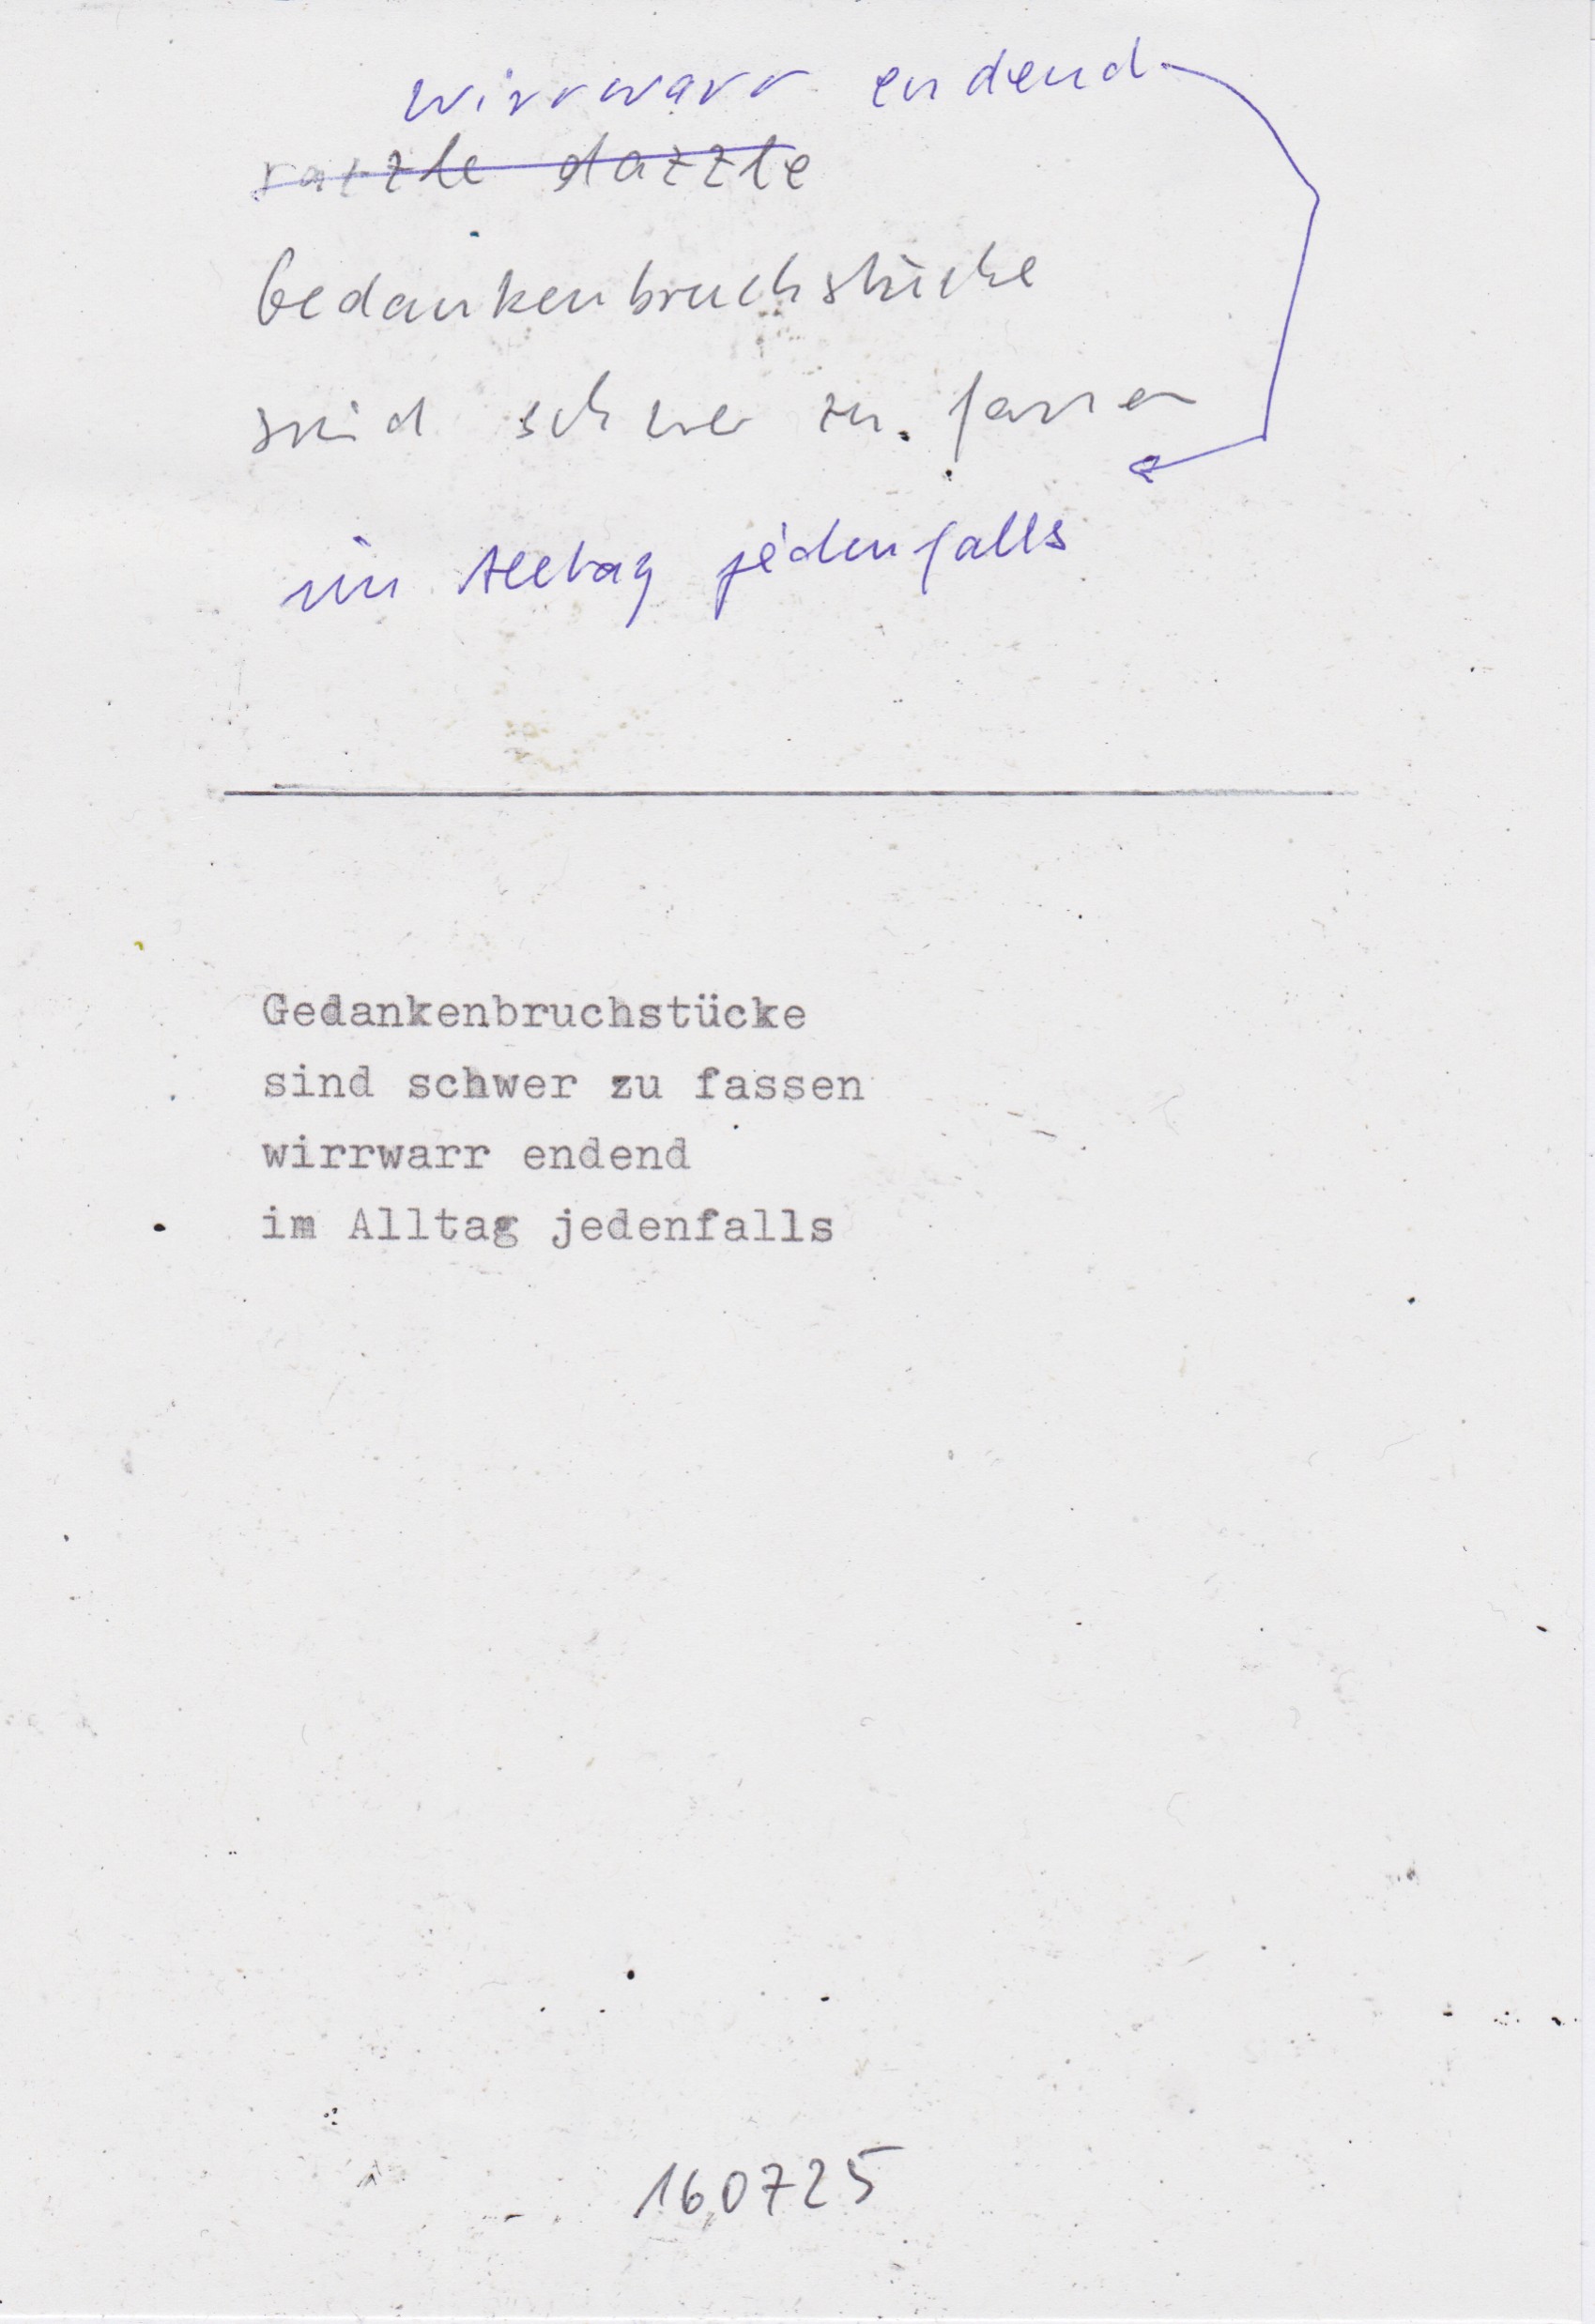 wirrwarr endend
razzle dazzle
Gedankenbruchstücke
sind schwer zu fassen
im Alltag jedenfalls
Gedankenbruchstücke
sind schwer zu fassen
wirrwarr endend
im Alltag jedenfalls
160725